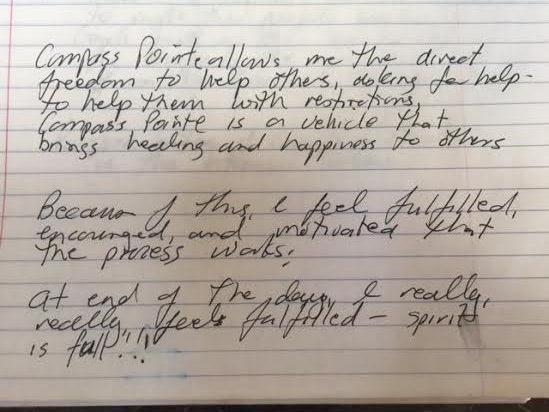 Compass Pointe allows me the direct
freedom to help others, asking for help -
to help them with restrictions,
Compass Pointe is a vehicle that
brings healing and happiness to others
Because of this, I feel fulfilled,
encouraged, and motivated that
the process works.
at end of the day, I really,
really feel fulfilled - spirit
is full!!!